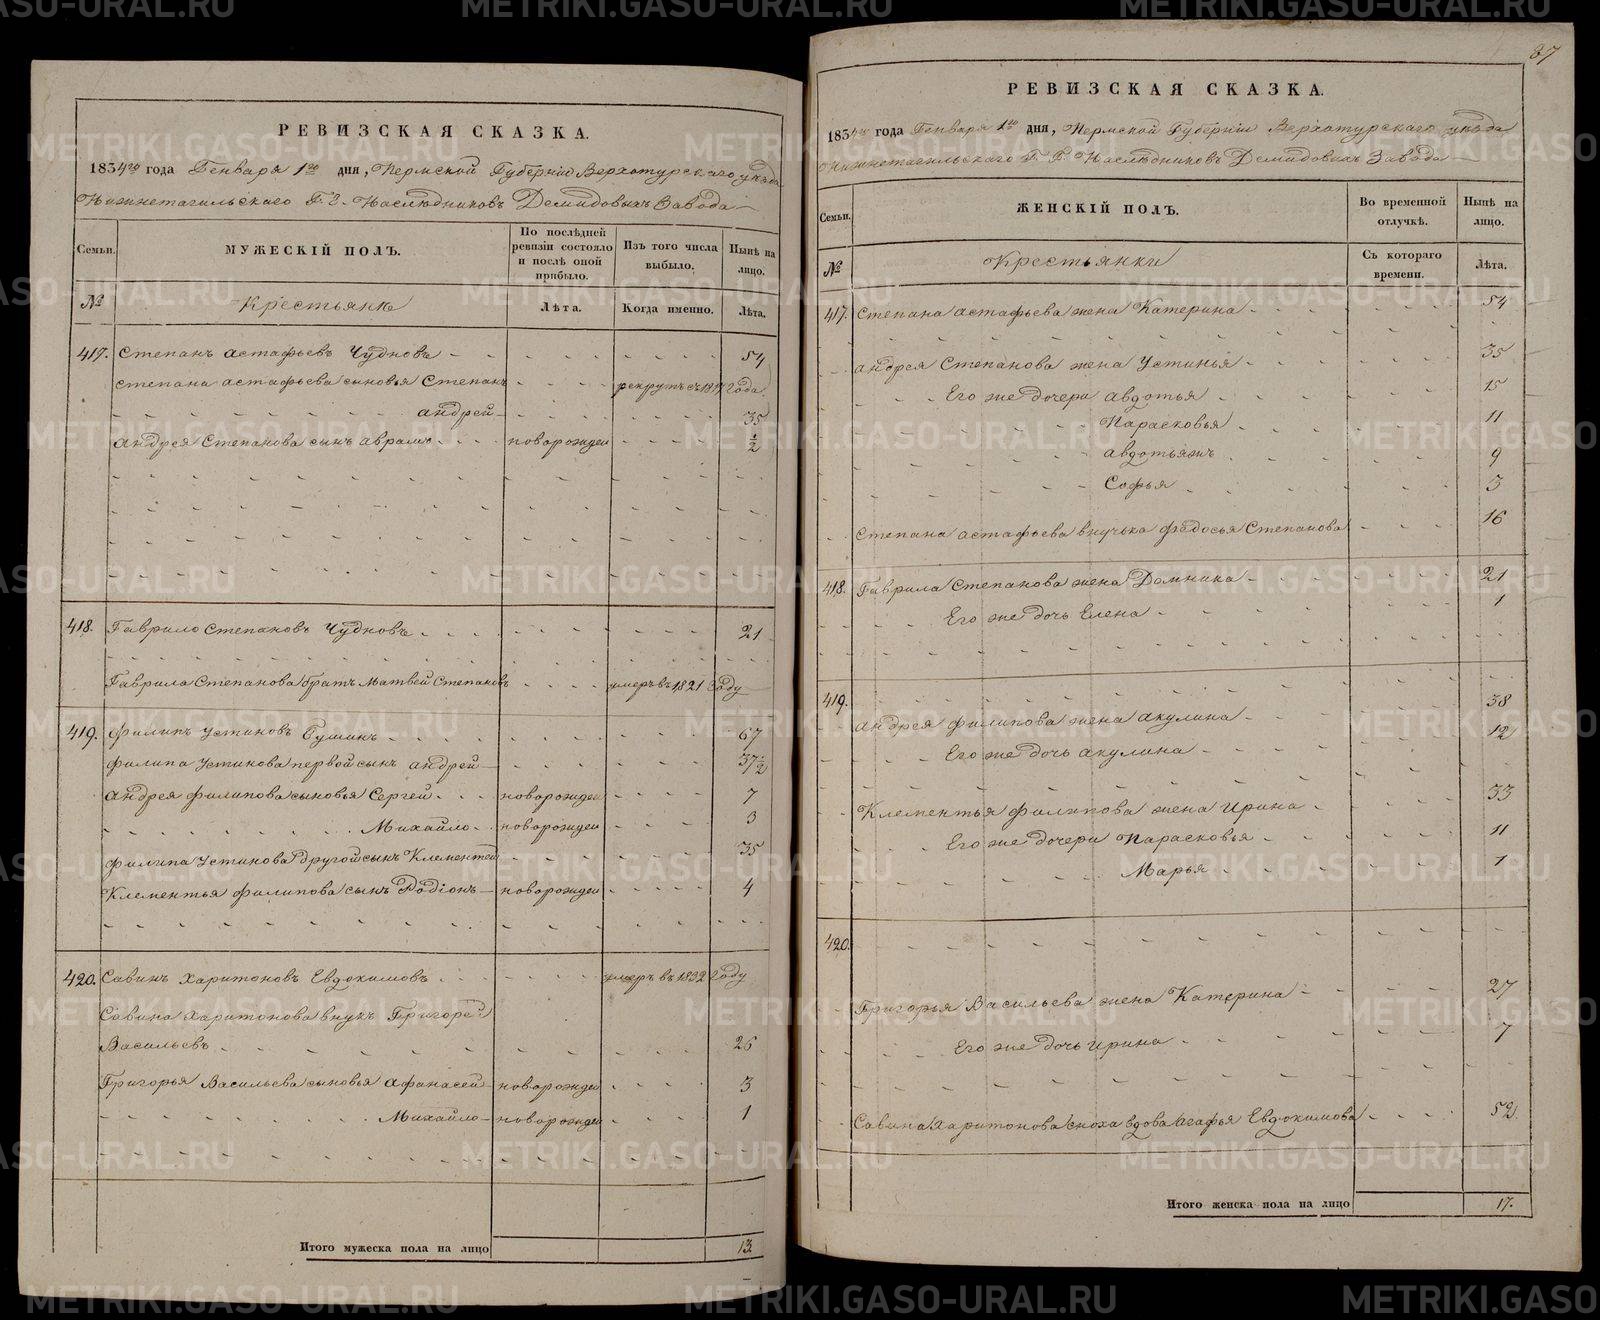 РЕВИЗСКАЯ СКАЗКА.
1834го года Генваря 1го дня, Пермской Губернiи Верхотурскаго уѣзда
Нижнетагильскаго Г. Г. Наслѣдниковъ Демидовыхъ Завода
Семьи. МУЖЕСКIЙ ПОЛЪ. По послѣдней ревизiи состояло и послѣ оной прибыло. Изъ того числа выбыло. Нынѣ на лицо.
№ Крестьянѣ Лѣта. Когда именно. Лѣта.
417. Степанъ Астафьевъ Чудновъ 54
Степана Астафьева сыновья Степанъ рекрутъ съ 1817 года.
Андрей 35
Андрея Степанова сынъ Аврамъ новорожден ½
418. Гаврило Степановъ Чудновъ 21
Гаврила Степанова братъ Матвей Степановъ умеръ въ 1821 году
419. Филипъ Устиновъ Гушинъ 67
Филипа Устинова первой сынъ Андрей 37½
Андрея Филипова сыновья Сергей новорожден 7
Михайло новорожден 3
Филипа Устинова другой сынъ Клементей 35
Клементья Филипова сынъ Родiонъ новорожден 4
420. Савинъ Харитоновъ Евдокимовъ умеръ въ 1832 году
Савина Харитонова внукъ Григорей
Васильевъ 26
Григорья Васильева сыновья Афанасей новорожден 3
Михайло новорожден 1
Итого мужеска пола на лицо 13.
87
РЕВИЗСКАЯ СКАЗКА.
1834го года Генваря 1го дня, Пермской Губернiи Верхотурскаго уѣзда
Нижнетагильскаго Г. Г. Наслѣдниковъ Демидовыхъ Завода
Семьи. ЖЕНСКIЙ ПОЛЪ. Во временной отлучкѣ. Нынѣ на лицо.
№ Крестьянки Съ котораго времени. Лѣта.
417. Степана Астафьева жена Катерина 54
Андрея Степанова жена Устинья 35
Его же дочери Авдотья 15
Парасковья 11
Авдотья жъ 9
Софья 3
Степана Астафьева внучька Федосья Степанова 16
418. Гаврила Степанова жена Домника 21
Его же дочь Елена 1
419.
Андрея Филипова жена Акулина 38
Его же дочь Акулина 12
Клементья Филипова жена Ирина 33
Его же дочери Парасковья 11
Марья 1
420.
Григорья Васильева жена Катерина 27
Его же дочь Ирина 7
Савина Харитонова сноха вдова Агафья Евдокимова 52.
Итого женска пола на лицо 17.
METRIKI.GASO-URAL.RU